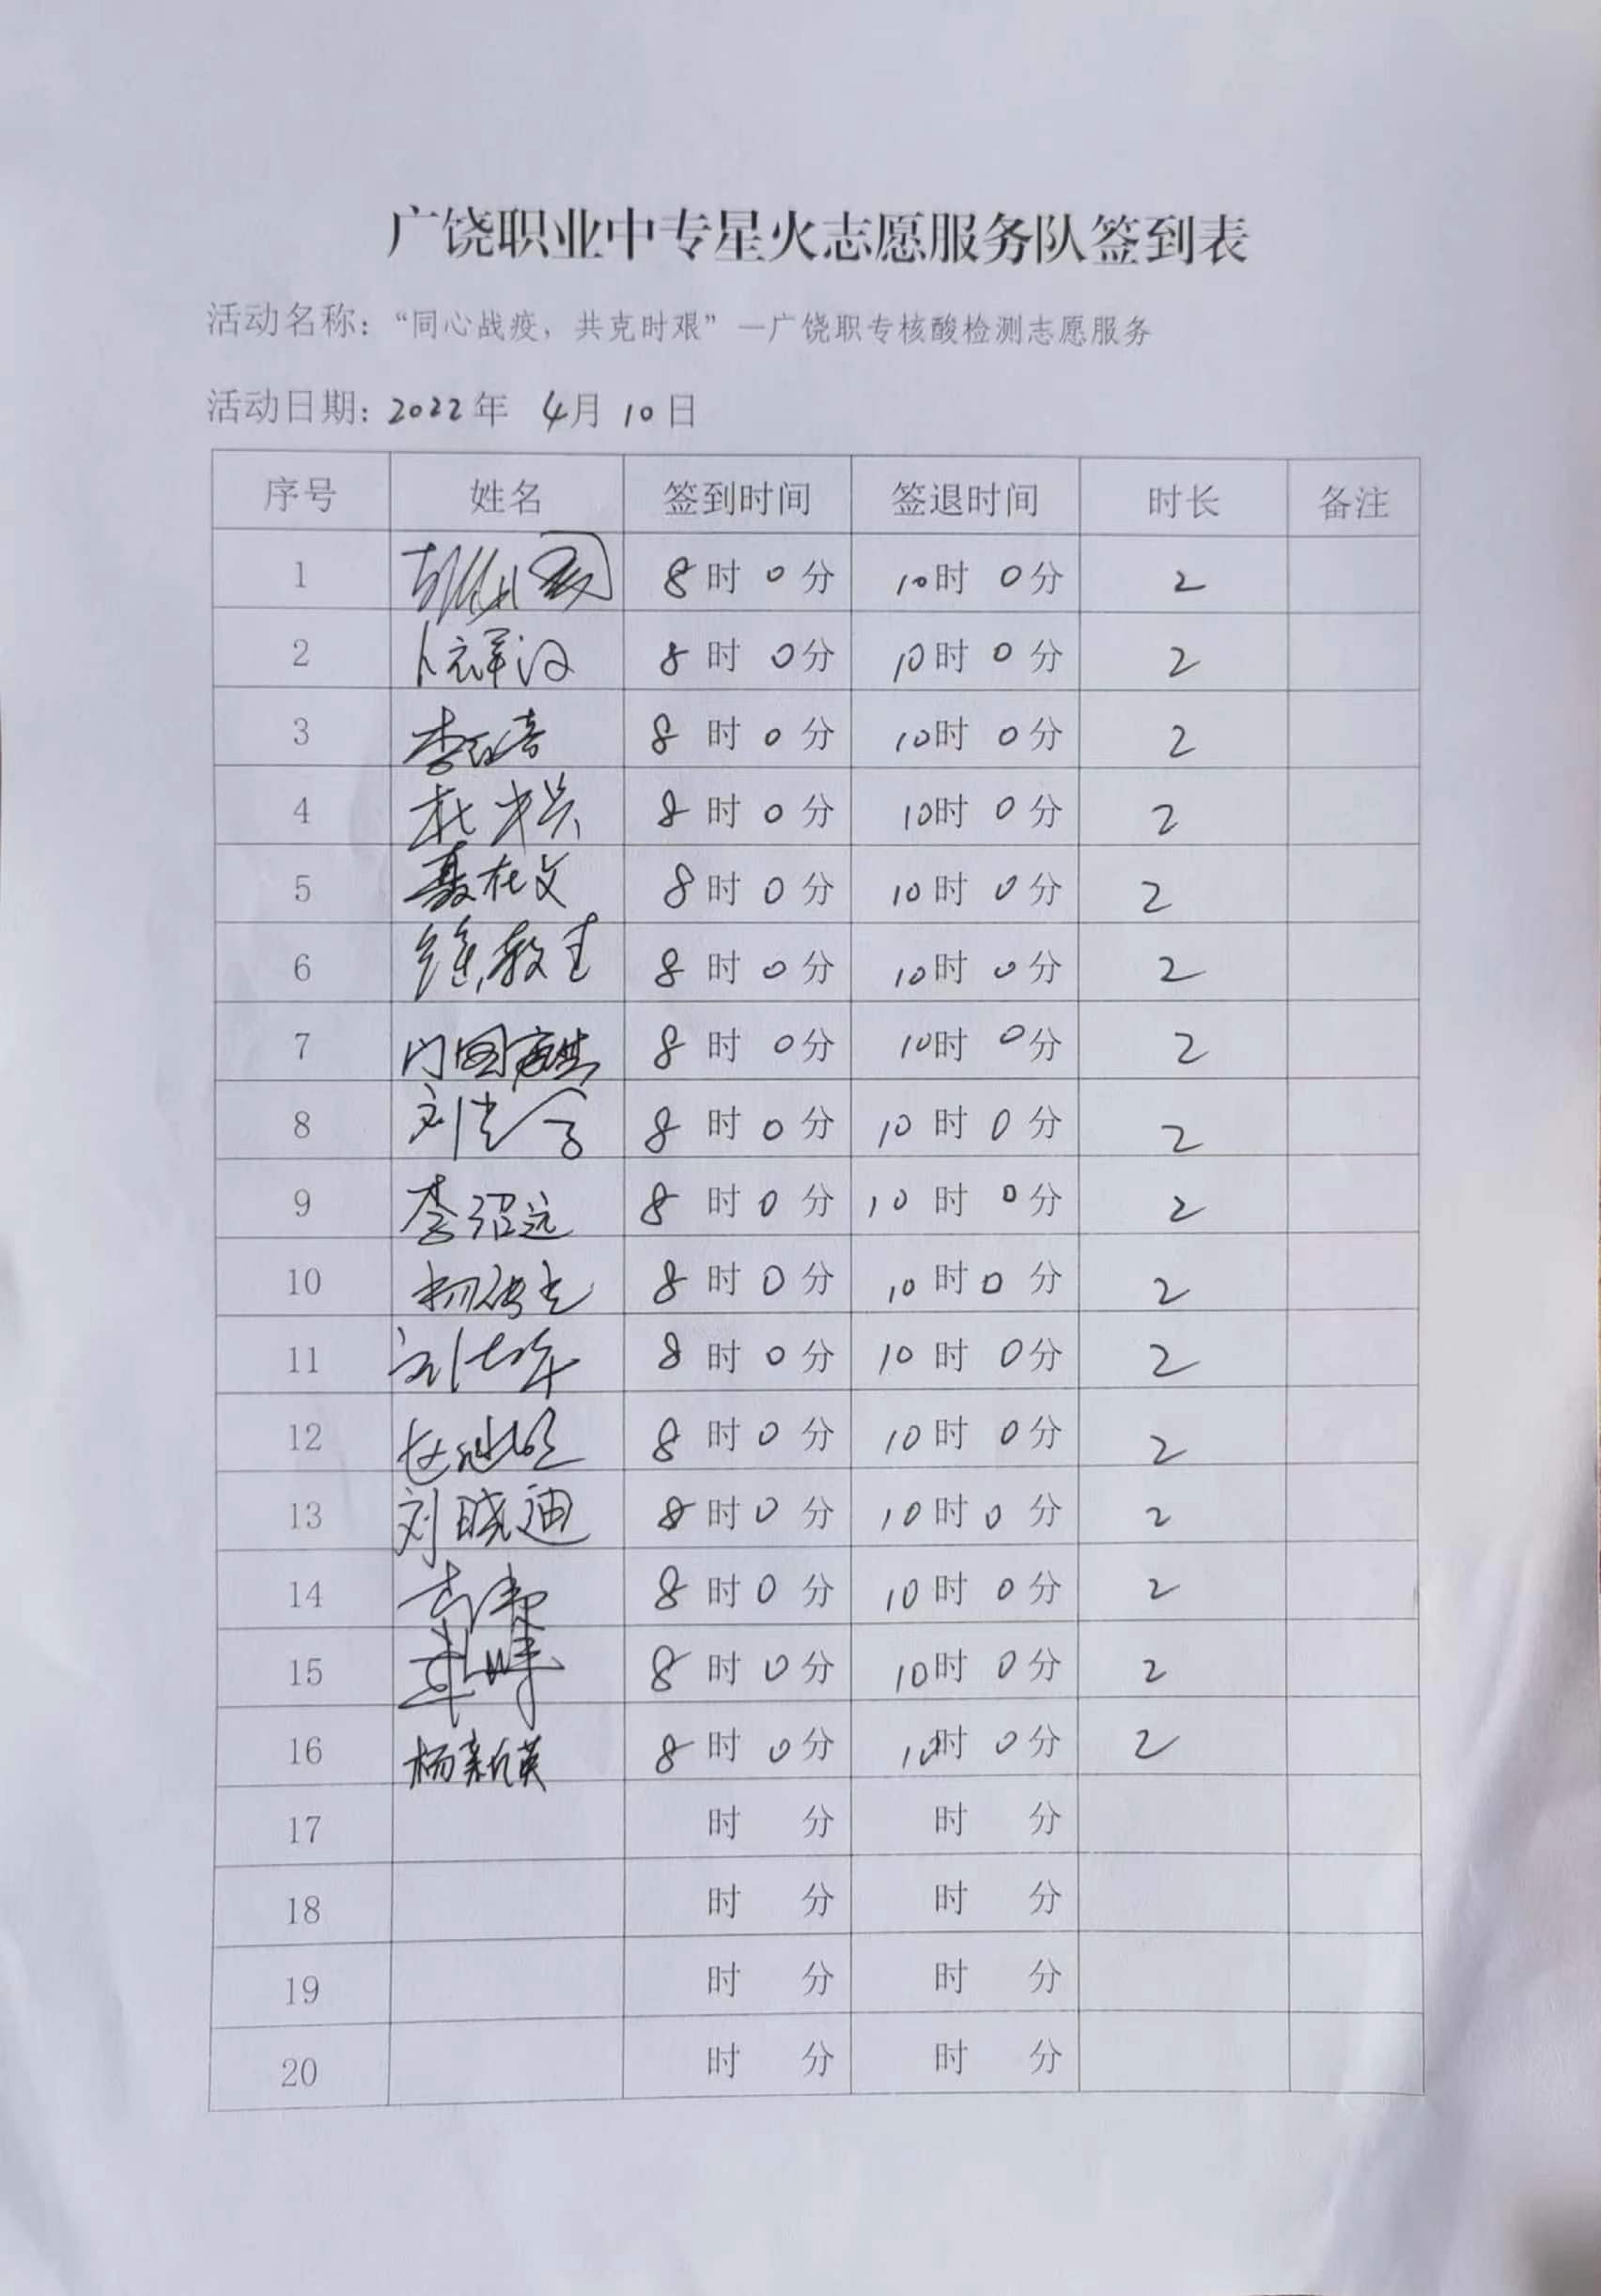 广饶职业中专星火志愿服务队签到表
活动名称：“同心战疫，共克时艰”—广饶职专核酸检测志愿服务
活动日期：2022年 4月10日
序号 姓名 签到时间 签退时间 时长 备注
1 8时0分 10时0分 2
2 8时0分 10时0分 2
3 8时0分 10时0分 2
4 8时0分 10时0分 2
5 聂在文 8时0分 10时0分 2
6 8时0分 10时0分 2
7 8时0分 10时0分 2
8 8时0分 10时0分 2
9 李绍远 8时0分 10时0分 2
10 8时0分 10时0分 2
11 8时0分 10时0分 2
12 8时0分 10时0分 2
13 刘晓迪 8时0分 10时0分 2
14 8时0分 10时0分 2
15 8时0分 10时0分 2
16 杨新英 8时0分 10时0分 2
17 时 分 时 分
18 时 分 时 分
19 时 分 时 分
20 时 分 时 分